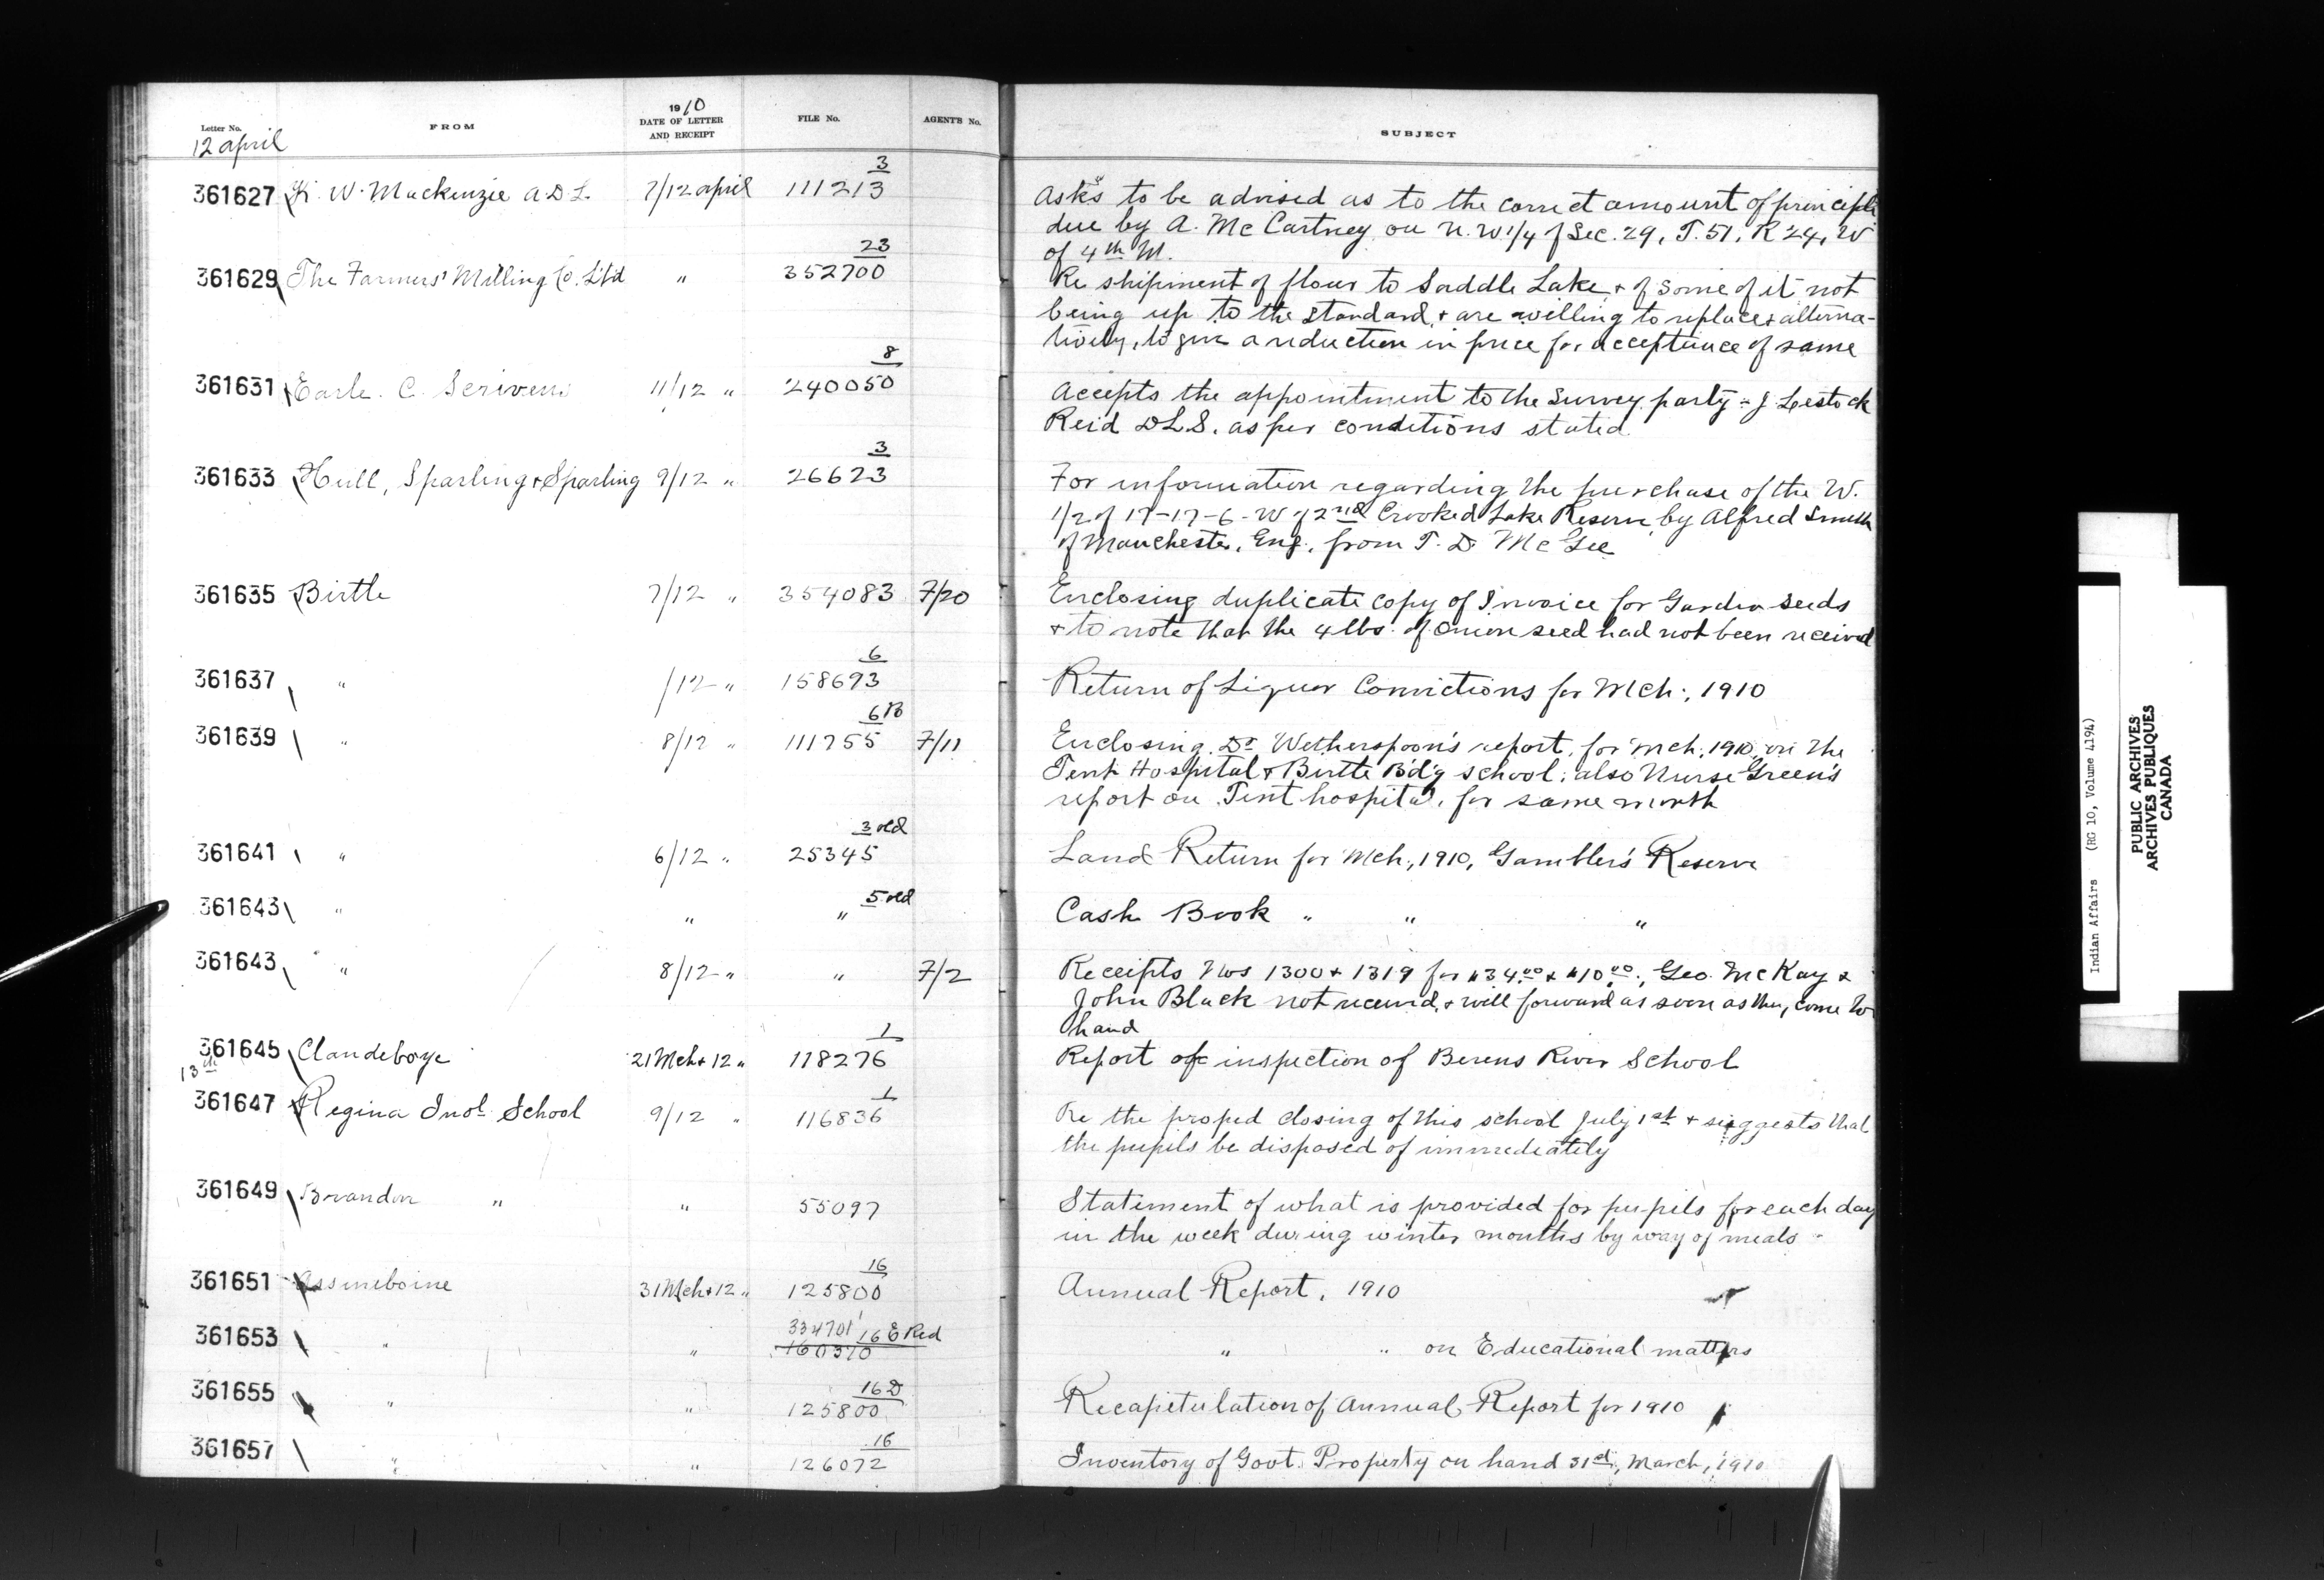 Letter No. FROM 1910 DATE OF LETTER AND RECEIPT FILE No. AGENTS No. SUBJECT
12 april
361627 K. W. Mackenzie A.D.L. 7/12 april 111213 3 Asks to be advised as to the correct amount of principle
due by A. McCartney on N.W. 1/4 of Sec. 29, T. 51, R 24, W
of 4th M.
361629 The Farmers' Milling Co. Ltd " 352700 23 Re shipment of flour to Saddle Lake, & of some of it not
being up to the standard, & are willing to replace & alterna-
tively, to give a reduction in price for acceptance of same
361631 Earle. C. Scriven 11/12 " 240050 8 Accepts the appointment to the Survey party - J Lestock
Reid DLS. as per conditions stated
361633 Hull, Sparling & Sparling 9/12 " 26623 3 For information regarding the purchase of the W.
1/2 of 17-17-6-W of 2nd Crooked Lake Reserve by Alfred Smith
of Manchester, Eng., from T. D. McGee
361635 Birtle 7/12 " 354083 7/20 Enclosing duplicate copy of Invoice for Garden seeds
& to note that the 4 lbs. of Onion seed had not been received
361637 " /12 " 158693 6 Return of Liquor Convictions for Mch., 1910
361639 " 8/12 " 111755 6B 7/11 Enclosing Dr Wetherspoon's report, for Mch. 1910, on the
Tent Hospital & Birtle Bd'g school; also Nurse Green's
report on Tent hospital, for same month
361641 " 6/12 " 25345 3 old Land Return for Mch., 1910, Gambler's Reserve
361643 " " " 5 old Cash Book " " "
361643 " 8/12 " " 7/2 Receipts Nos 1300 & 1319 for $34.00 & $10.00, Geo. McKay &
John Black not received, & will forward as soon as they come to
hand
361645 Clandeboye 21 Mch & 12 " 118276 1 Report of inspection of Berens River School
13th
361647 Regina Indl School 9/12 " 116836 1 Re the proped closing of this school July 1st & suggests that
the pupils be disposed of immediately
361649 Brandon " " 55097 Statement of what is provided for pupils for each day
in the week during winter months by way of meals -
361651 Assineboine 31 Mch & 12 " 125800 16 Annual Report, 1910
361653 " " 334701 16 E Red 160370 " " on Educational matters
361655 " " 125800 16 D Recapitulation of Annual Report for 1910
361657 " " 126072 16 Inventory of Govt. Property on hand 31st, March, 1910
Indian Affairs (RG 10, Volume 4194)
PUBLIC ARCHIVES
ARCHIVES PUBLIQUES
CANADA